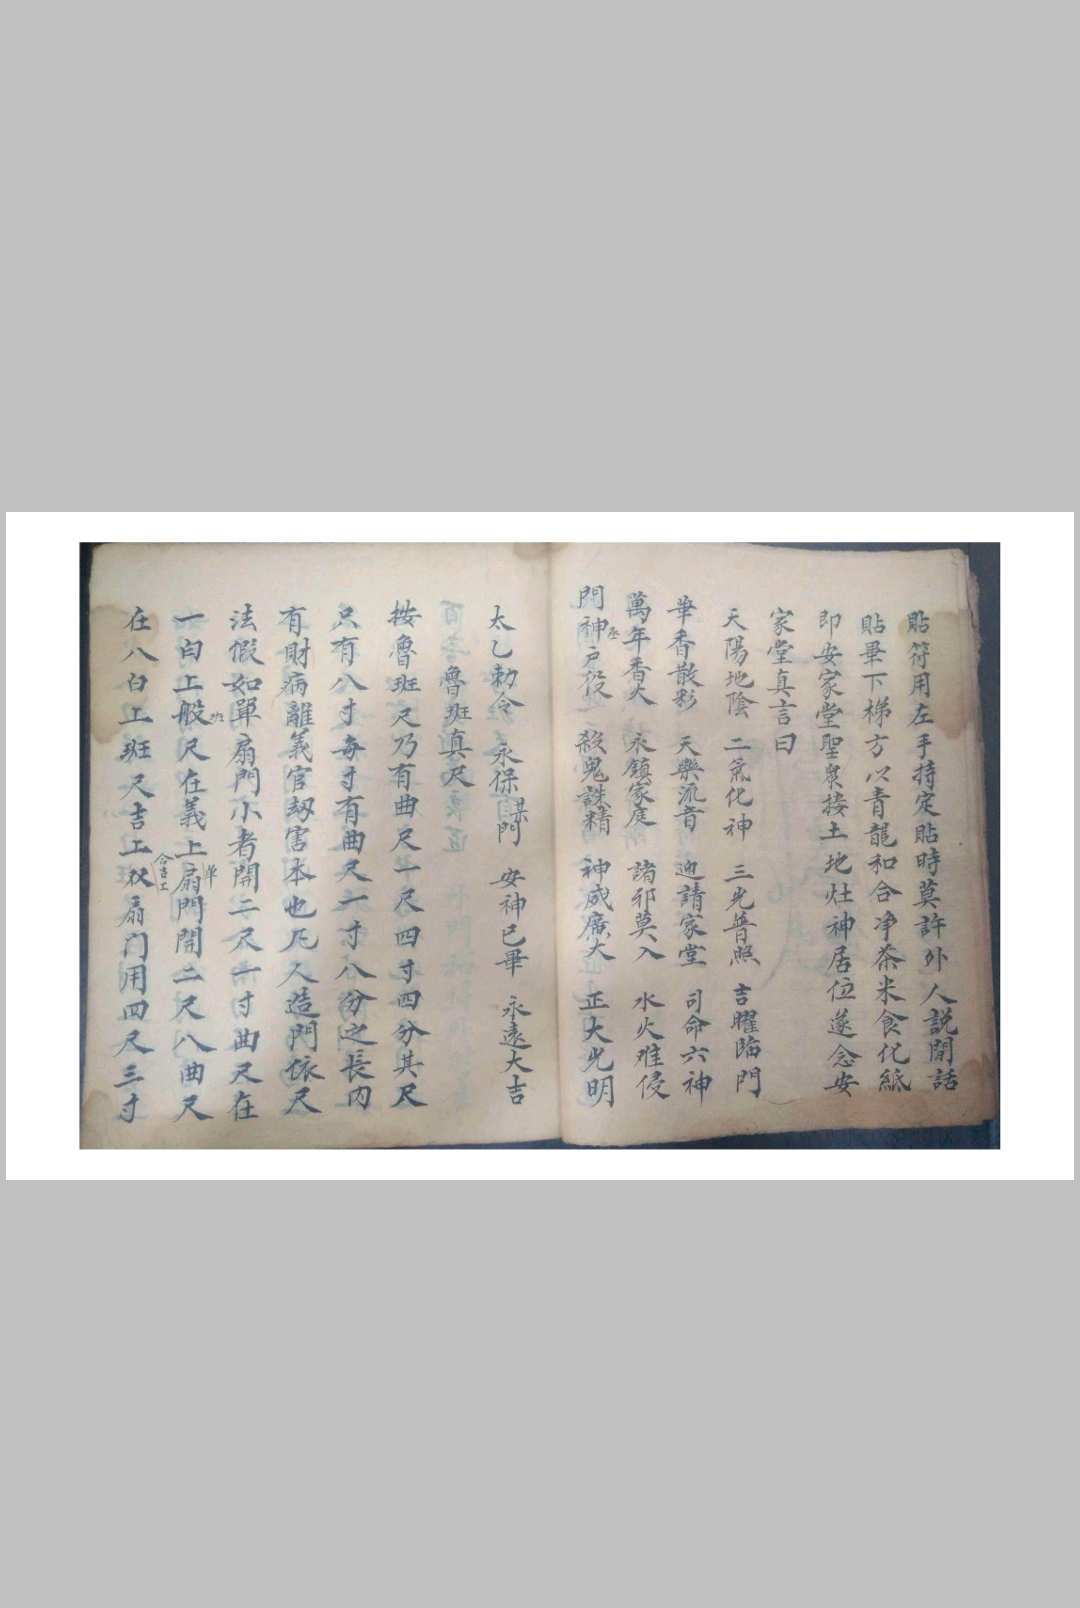 貼符用左手持定貼時莫許外人説閒話
貼畢下梯方以青龍和合净茶米食化紙
即安家堂聖衆接土地灶神居位遂念安
家堂真言曰
天陽地陰 二氣化神 三光普照 吉曜臨門
華香散彩 天樂流音 迎請家堂 司命六神
萬年香火 永鎮家庭 諸邪莫入 水火难侵
門神户 殺鬼誅精 神威廣大 正大光明
太乙勅令 永保某門 安神已畢 永遠大吉
魯班真尺
按魯班尺乃有曲尺一尺四寸四分其尺
只有八寸每寸有曲尺一寸八分之長内
有財病離義官刼害本也凡人造門依尺
法假如單扇門小者開二尺一寸曲尺在
一白上般尺在義上扇門開二尺八曲尺
班
單
合吉工
在八白上班尺吉上双扇门用四尺三寸